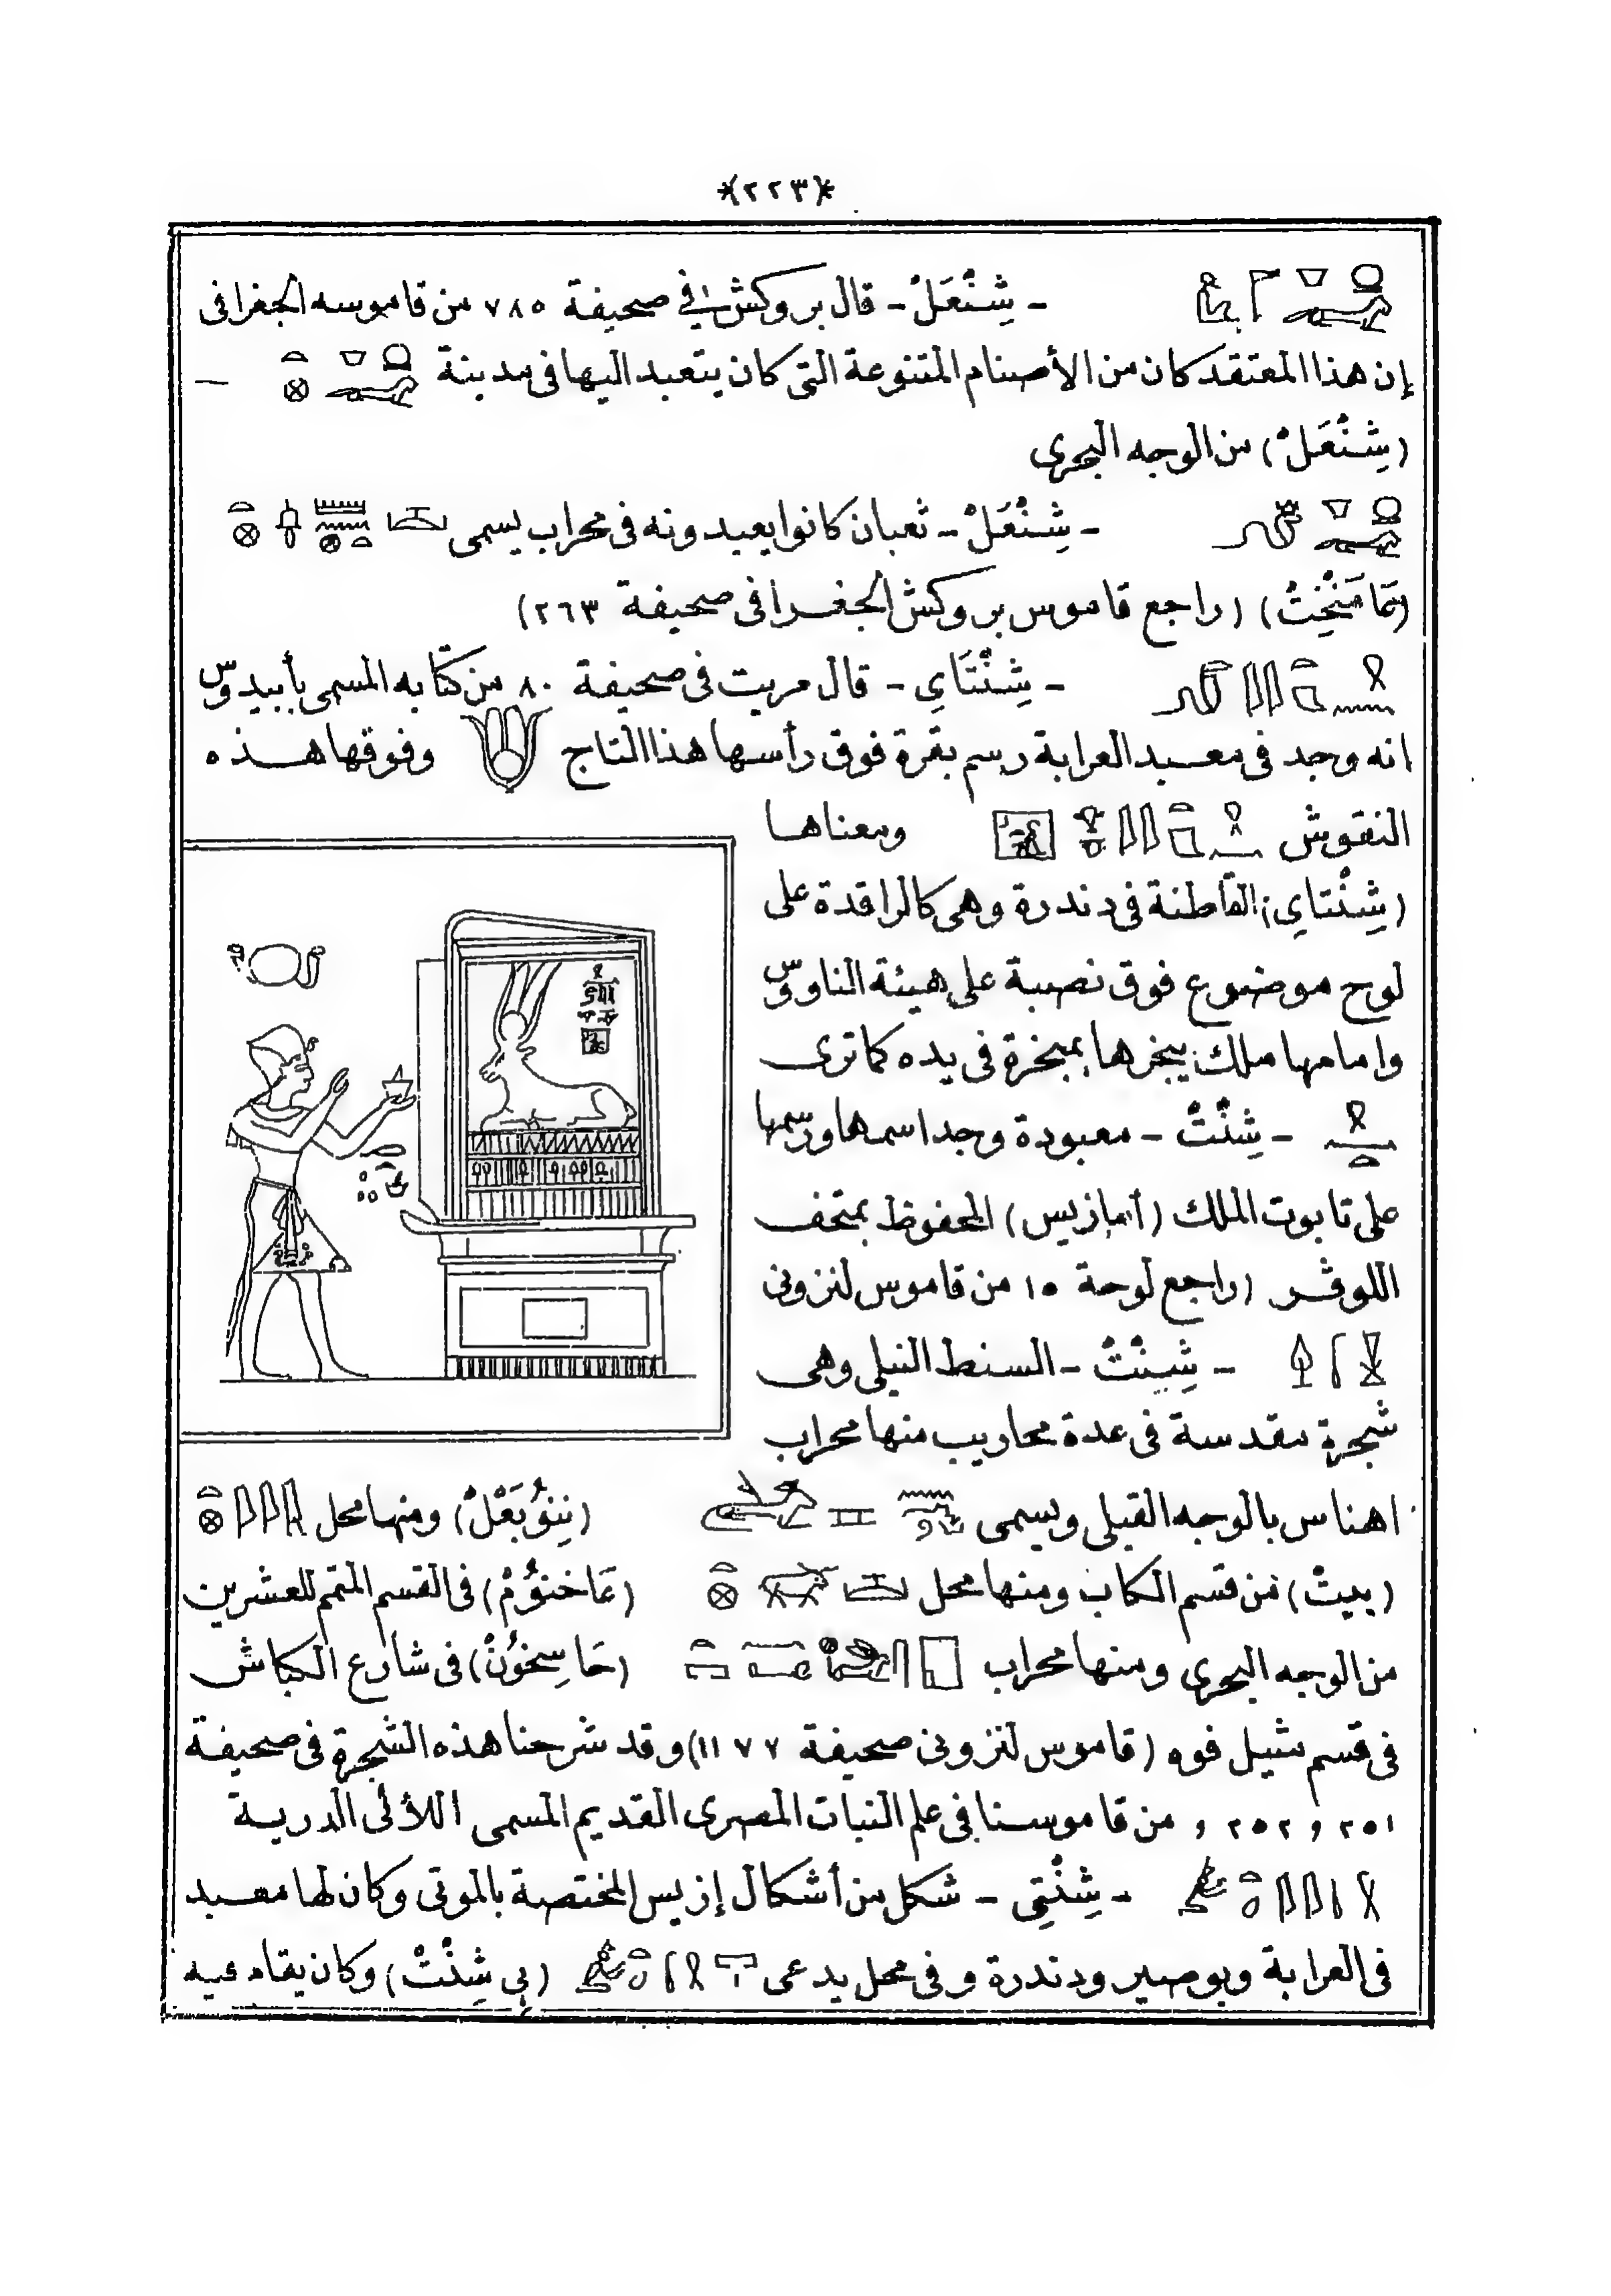 *(٢٢٣)*
- شِنْعَلْ - قال بروكش في صحيفة ٧٨٥ من قاموسه الجغرافى
إن هذا المعتقد كان من الأصنام المتنوعة التى كان يتعبد اليها فى مدينة -
(شِنْعَلْ) من الوجه البحرى
- شِنْعَلْ - ثعبان كانوا يعبدونه فى محراب يسمى
(راجع قاموس بروكش الجغرافى صحيفة ٢٦٣)
- شِنْتَاىِ - قال مريت فى صحيفة ٨٠ من كتابه المسمى بأبيدوس
انه وجد فى معبد العرابة رسم بقرة فوق رأسها هذا التاج وفوقها هذه
النقوش ومعناها
(شِنْتاىِ) القاطنة فى دندرة وهى كالراقدة على
لوح موضوع فوق نصبة على هيئة الناووس
وامامها ملك يبخرها بمبخرة فى يده كما ترى
- شِنْتْ - معبودة وجد اسمها ورسمها
على تابوت الملك (أمازيس) المحفوظ بمتحف
اللوڤر (راجع لوحة ١٥ من قاموس لنزونى
- شِينْتْ - السنط النيلى وهى
شجرة مقدسة فى عدة محاريب منها محراب
اهناس بالوجه القبلى ويسمى (نِنوُبَعْلْ) ومنها محل
(بديتْ) من قسم الكاب ومنها محل (عَاخنوُمْ) فى القسم المتمم للعشرين
من الوجه البحرى ومنها محراب (حَاسِخوُنْ) فى شارع الكباش
فى قسم شيل فوه (قاموس لنزونى صحيفة ١١٧٧) وقد شرحنا هذه الشجرة فى صحيفة
٢٥١ و ٢٥٢ و من قاموسنا فى علم النبات المصرى القديم المسمى اللآلئ الدرية
- شِنْتِى - شكل من أشكال إزيس المختصة بالموتى وكان لها معبد
فى العرابة وبوصير ودندرة وفى محل يدعى (بِى شِنْتْ) وكان يقام عيد